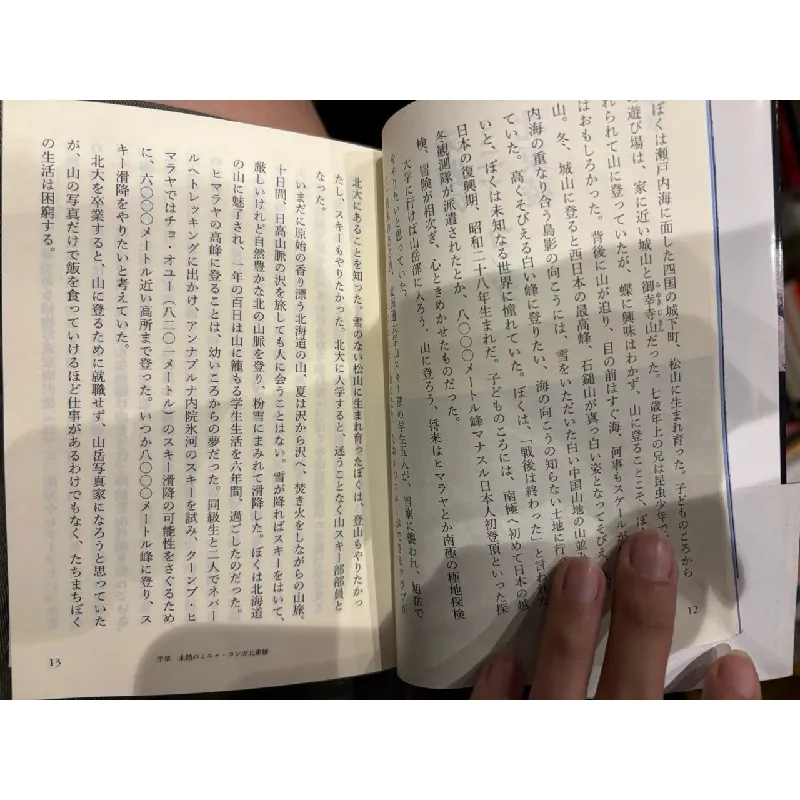 ぼくは瀬戸内海に面した四国の城下町、松山に生まれ育った。子どものころから
の遊び場は、家に近い城山と御幸寺山だった。七歳年上の兄は昆虫少年で、
れられて山に登っていたが、蝶に興味はわかず、山に登ることこそ、ぼ
はおもしろかった。背後に山が迫り、目の前はすぐ海、何事もスケールが
山。冬、城山に登ると西日本の最高峰、石鎚山が真っ白い姿となってそびえ
内海の重なり合う島影の向こうには、雪をいただいた白い中国山地の山並み
ていた。高くそびえる白い峰に登りたい、海の向こうの知らない土地に行
いと、ぼくは未知なる世界に憧れていた。ぼくは、「戦後は終わった」と言われた
日本の復興期、昭和二十八年生まれだ。子どものころには、南極へ初めて日本の越
冬観測隊が派遣されたとか、八〇〇〇メートル峰マナスル日本人初登頂といった探
検、冒険が相次ぎ、心ときめかせたものだった。
大学に行けば山岳部に入ろう、山に登ろう、将来はヒマラヤとか南極の極地探検
をやりたいと思っていた。
12
北大にあることを知った。雪のない松山に生まれ育ったぼくは、登山もやりたかっ
たし、スキーもやりたかった。北大に入学すると、迷うことなく山スキー部部員と
なった。
いまだに原始の香り漂う北海道の山、夏は沢から沢へ、焚き火をしながらの山旅。
十日間、日高山脈の沢を旅しても人に会うことはない。雪が降ればスキーをはいて、
厳しいけれど自然豊かな北の山脈を登り、粉雪にまみれて滑降した。ぼくは北海道
の山に魅了され、一年の百日は山に籠もる学生生活を六年間、過ごしたのだった。
ヒマラヤの高峰に登ることは、幼いころからの夢だった。同級生と二人でネパー
ルへトレッキングに出かけ、アンナプルナ内院氷河のスキーを試み、クーンブ・ヒ
マラヤではチョ・オユー（八二〇一メートル）のスキー滑降の可能性をさぐるため
に、六〇〇〇メートル近い高所まで登った。いつか八〇〇〇メートル峰に登り、ス
キー滑降をやりたいと考えていた。
北大を卒業すると、山に登るために就職せず、山岳写真家になろうと思っていた
が、山の写真だけで飯を食っていけるほど仕事があるわけでもなく、たちまちぼく
の生活は困窮する。
序章　未踏のミニヤ・コンガ北東稜
13